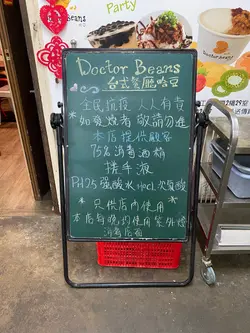 Party
Doctor Beans
台式餐廳哈豆
全民抗疫 人人有責
*如發燒者 敬請勿進*
本店提供顧客
75%消毒酒精
搓手液
PH2.5強酸水+Hocl次氯酸
*只供店內使用
本店每晚均使用紫外燈
消毒店面